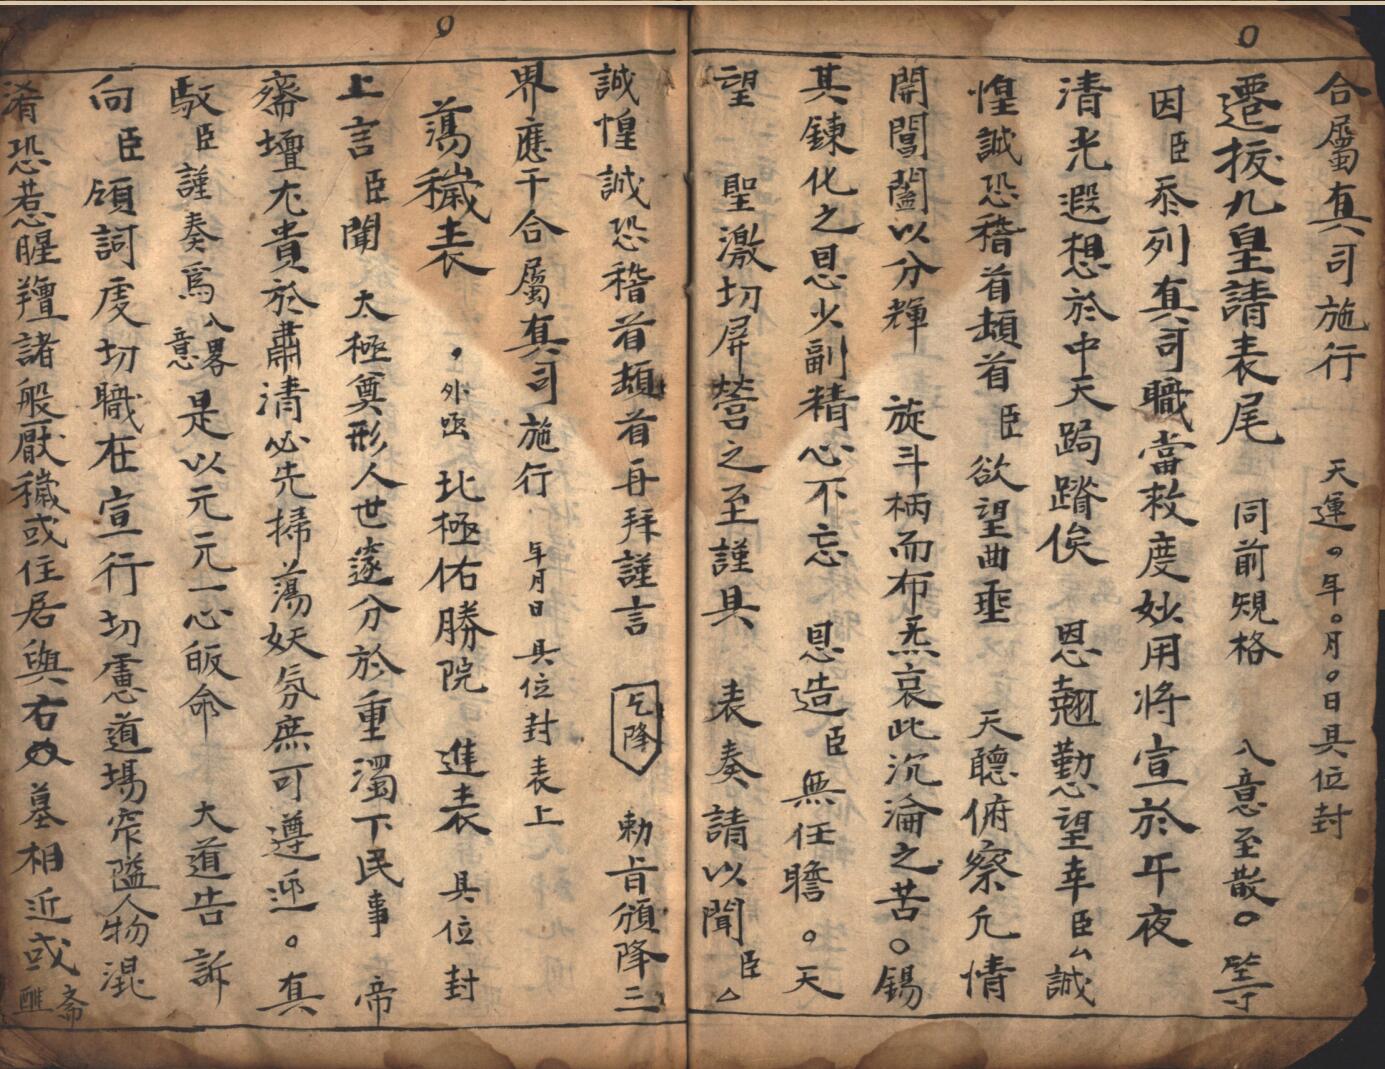 合屬真司施行　天運○年○月○日具位封
遷拔九皇請表尾　同前規格　入意至散○等
因臣忝列真司職當救度妙用将宣於斗夜
清光遐想於中天跼蹐俟　恩翹勤望幸臣厶誠
惶誠恐稽首頓首臣欲望曲垂　天聽俯察凢情
開閶闔以分輝　旋斗柄而布炁哀此沉淪之苦○錫
其鍊化之恩少副精心不忘　恩造臣　無任瞻○天
望　聖激切屏營之至謹具　表奏請以聞臣厶
誠惶誠恐稽首頓首再拜謹言　乞降　勅旨頒降三
界應干合屬真司施行　年月日　具位封表上
蕩穢表　外凾　北極佑勝院　進表　具位封
上言臣聞　太極奠形人世遂分於重濁下民事　帝
齋壇尢貴於肅清必先掃蕩妖氛庶可遵迎○真
馭臣謹奏爲入畧意是以元元一心皈命　大道告訴
向臣領詞虔切職在宣行切慮道場窄隘人物混
淆恐惹腥羶諸般厭穢或住居與右墓相近或